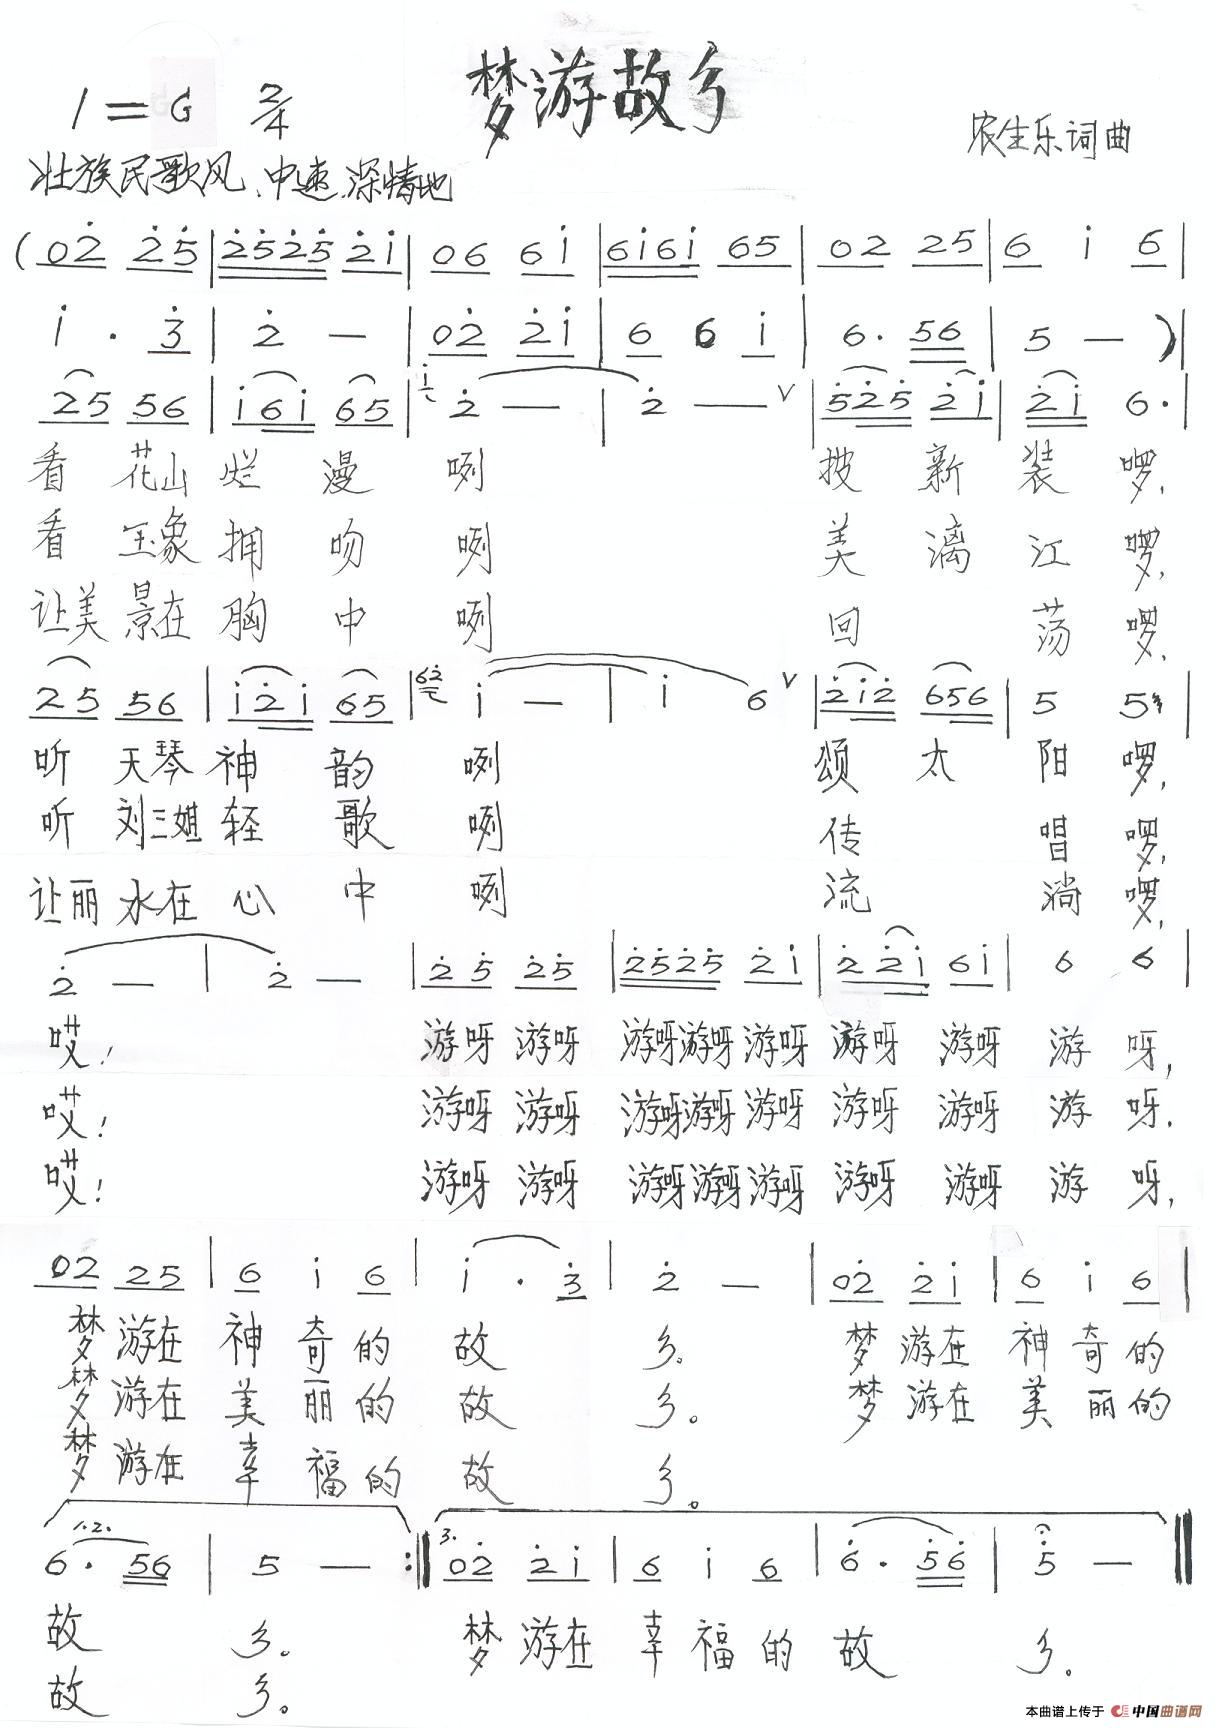 梦游故乡
1=G 2/4
农生乐词曲
壮族民歌风、中速、深情地
(02̇ 2̇5̇ | 2̇5̇2̇5̇ 2̇1̇ | 06 61̇ | 61̇61̇ 65 | 02 25 | 6 1̇ 6 |
1̇ · 3̇ | 2̇ — | 02̇ 2̇1̇ | 6 6 1̇ | 6· 56 | 5 — )|
25 56 | 1̇61̇ 65 | 1̇ 2̇ — | 2̇ — ∨ | 5̇2̇5̇ 2̇1̇ | 2̇1̇ 6· |
看 花山 烂 漫 咧 披 新 装 啰,
看 玉象 拥 吻 咧 美 漓 江 啰,
让美 景在 胸 中 咧 回 荡 啰,
25 56 | 1̇2̇1̇ 65 | 62̇ 1̇ — | 1̇ 6 ∨ | 2̇1̇2̇ 656 | 5 5 |
听 天琴 神 韵 咧 颂 太 阳 啰,
听 刘三姐 轻 歌 咧 传 唱 啰,
让丽 水在 心 中 咧 流 淌 啰,
2̇ — | 2̇ — | 2̇5̇ 2̇5̇ | 2̇5̇2̇5̇ 2̇1̇ | 2̇2̇1̇ 61̇ | 6 6 |
哎! 游呀 游呀 游呀游呀 游呀 游呀 游呀 游 呀,
哎! 游呀 游呀 游呀游呀 游呀 游呀 游呀 游 呀,
哎! 游呀 游呀 游呀游呀 游呀 游呀 游呀 游 呀,
02 25 | 6 1̇ 6 | 1̇ · 3̇ | 2̇ — | 02̇ 2̇1̇ | 6 1̇ 6 |
梦 游在 神 奇 的 故 乡。 梦 游在 神 奇 的
梦 游在 美 丽 的 故 乡。 梦 游在 美 丽 的
梦 游在 幸 福 的 故 乡。
1.2. 6· 56 | 5 — :‖ 3. 02̇ 2̇1̇ | 6 1̇ 6 | 6̇· 5̇6̇ | 5̇ — ‖
故 乡。 梦 游在 幸 福 的 故 乡。
故 乡。
本曲谱上传于 中国曲谱网